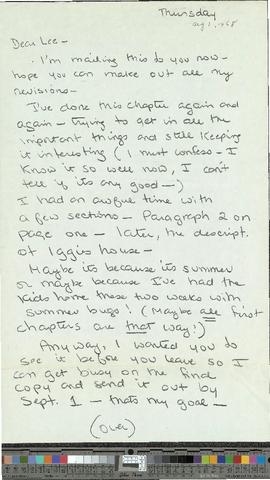 Thursday
Aug 1, 1968
Dear Lee -
I'm mailing this to you now -
hope you can make out all my
revisions -
I've done this chapter again and
again - trying to get in all the
important things and still keeping
it interesting (I must confess - I
know it so well now, I can't
tell if its any good -)
I had an awful time with
a few sections - Paragraph 2 on
page one - later, the descript.
of Iggis house -
Maybe its because its summer
or maybe because I've had the
kids home these two weeks with
summer bugs! (Maybe all first
chapters are that way!)
Anyway, I wanted you to
see it before you leave so I
can get busy on the final
copy and send it out by
Sept. 1 - thats my goal -
(over)